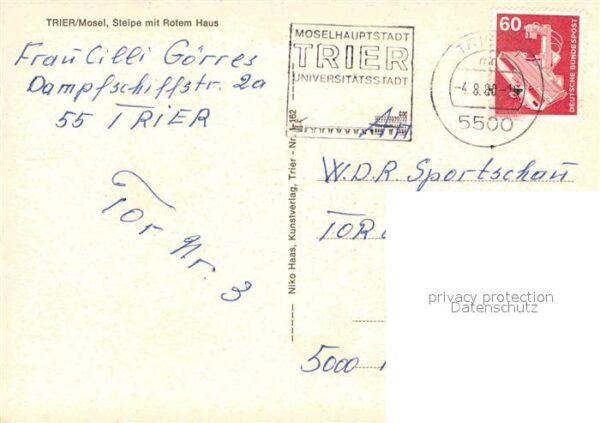 TRIER/Mosel, Steipe mit Rotem Haus
Frau Cilli Görres
Dampfschiffstr. 2a
55 TRIER
Tor Nr. 3
Niko Haas, Kunstverlag, Trier - Nr. 1-162
MOSELHAUPTSTADT
TRIER
UNIVERSITÄTSSTADT
60
DEUTSCHE BUNDESPOST
-4.8.80-
5500
An
W.D.R. Sportschau
TOR
5000
privacy protection
Datenschutz